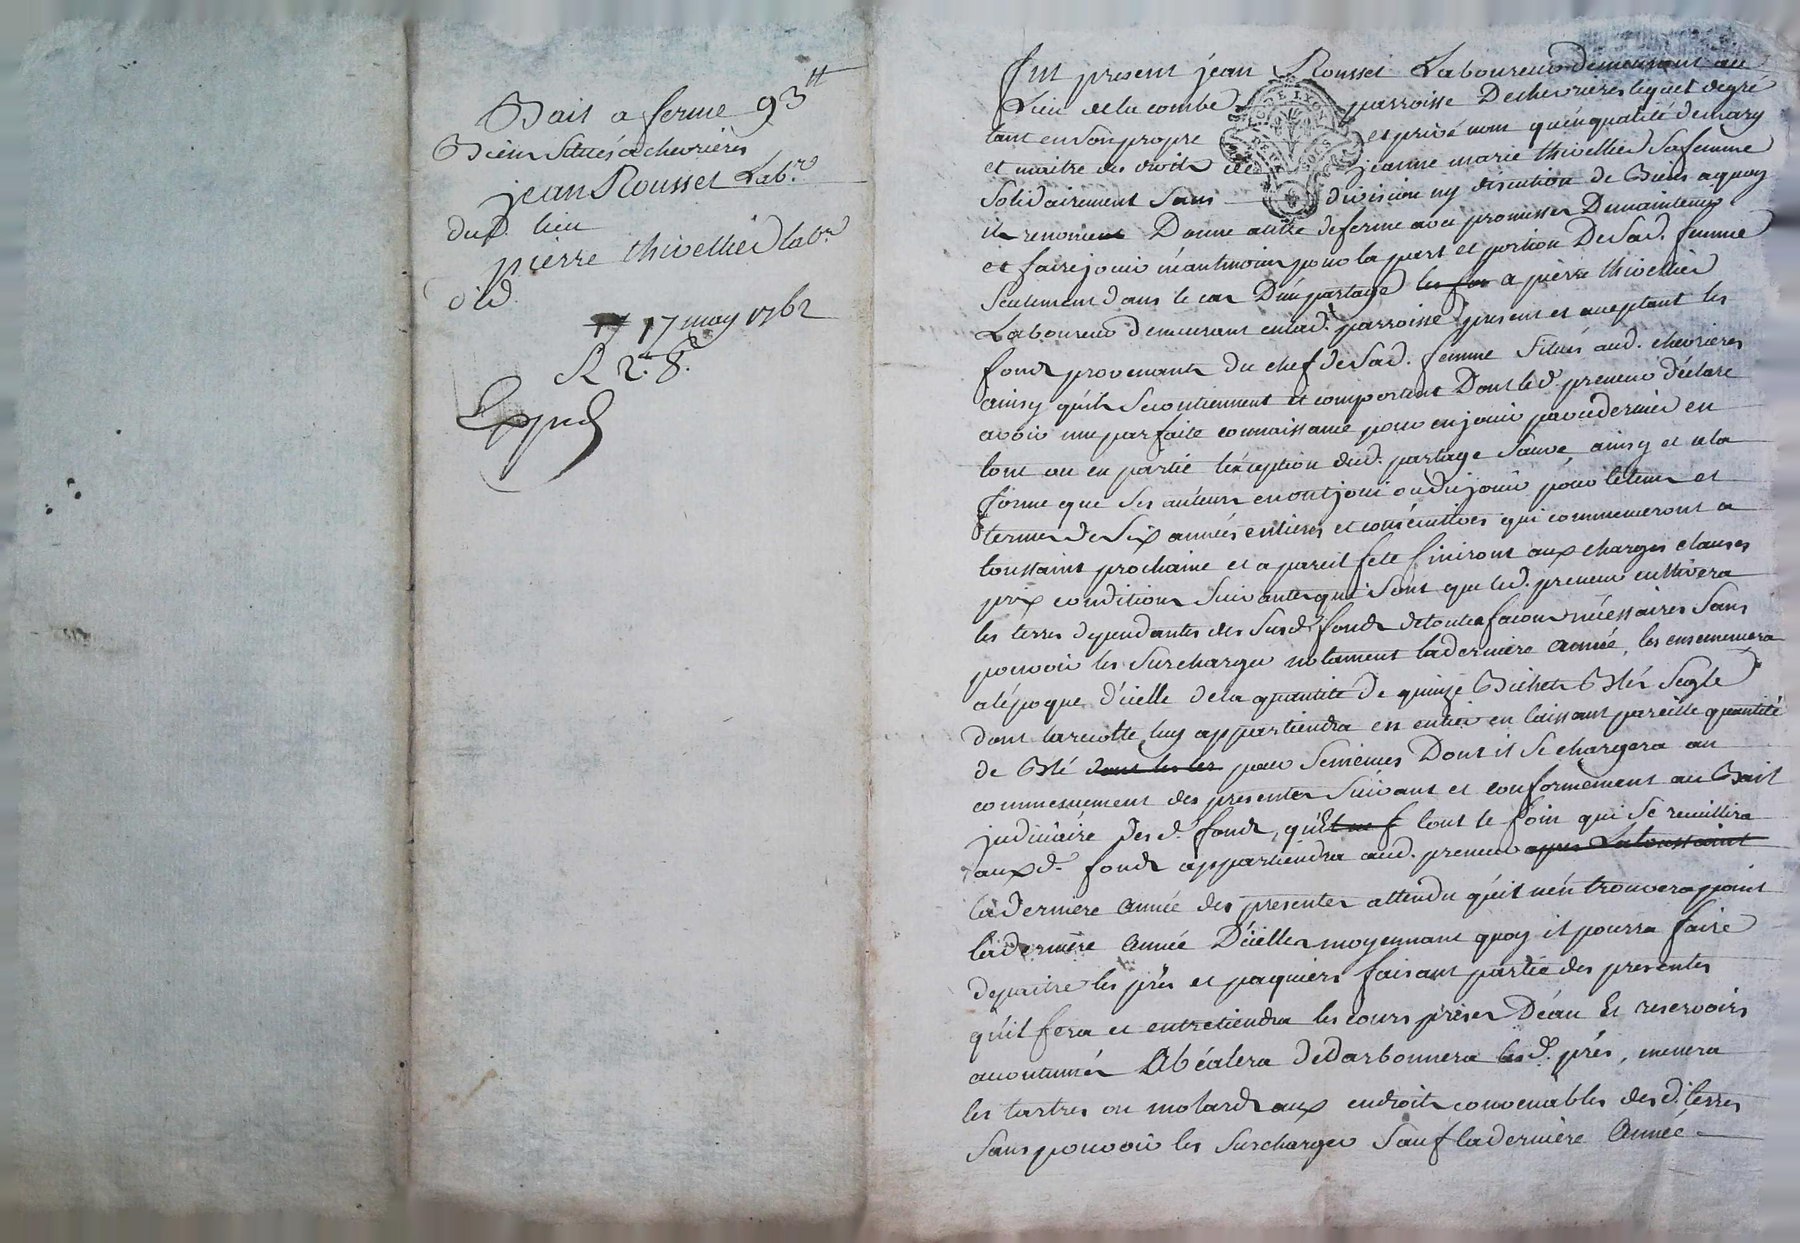 Bail a ferme 93tt
Biens Situés a chevrières
jean Rousset Lab.r
dud. lieu
pierre thivellier lab.r
did.
17 may 1762
R 2.tt 8.s
Expned
fut present jean Rousset Laboureur demeurant au
Lieu de la combe parroisse De chevrieres lequel degré
tant en son propre et privé nom qu'en qualité de mary
et maitre des droits de jeanne marie thivellier Sa femme
Solidairement Sans division ny discution de Biens a quoy
il renonce Donne a titre de ferme avec promesse De maintenir
et faire jouir néantmoins pour la part et portion De Sad. femme
Seulement dans le cas D'un partage a pierre thivellier
Laboureur demeurant en lad. parroisse present et acceptant les
fonds provenants Du chef de Sad. femme Situés aud. chevrieres
ainsy quils Se contiennent et comportent Dont led. preneur déclare
avoir une parfaite connaissance pour en jouir par ce dernier en
tout ou en partie l'exception dud. partage Sauve, ainsy et a la
forme que Ses auteurs en ont joui ou du jouir pour le tems et
terme de Six années entieres et consécutives qui commenceront a
toussaint prochaine et a pareil fete finiront aux charges clauses
prix conditions Suivantes qui Sont que led. preneur cultivera
les terres dependantes des Susd. fonds de toutes facons nécessaires Sans
pouvoir les Surcharger notament la derniere année, les ensemencera
a l'époque d'icelle de la quantité de quinze Bichets Blé Segle
dont la recolte luy appartiendra en entier en laissant pareille quantité
de Blé dans les les pour Semences Dont il Se chargera au
commencement des presentes Suivant et conformement au Bail
judiciaire des d. fonds, qu'il tout le foin qui Se recuillira
aux d. fonds appartiendra aud. preneur apres La toussaint
la derniere année des presentes attendu qu'il n'en trouvera point
la derniere année D'icelles moyennant quoy il pourra faire
depaitre les prés et paquiers faisant partie des presentes
qu'il fera et entretiendra les cours prises D'eau Et reservoirs
acoutumés Abéalera dedarbonnera lesd. prés, menera
les tartres ou molards aux endroits convenables des d. terres
Sans pouvoir les Surcharger Sauf la derniere Année
G. DE LYON
DEUX SOLS